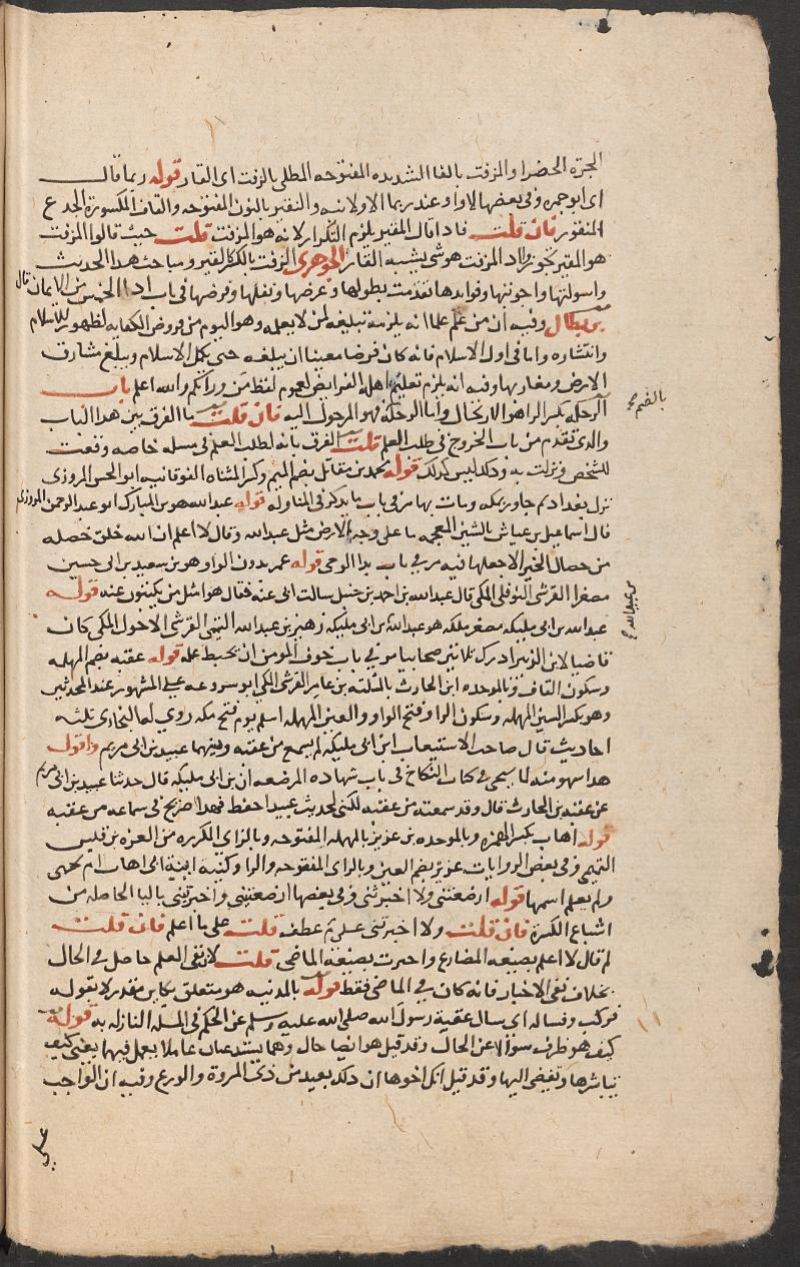 الجرة الخضرا والمزفت بالفا الشديده المفتوحه المطلى بالزفت اى القار قوله ربما قال
اى ابو جمره وفى بعضها الاو او عند ربما الاولانه والنقير بالنون المفتوحه والقاف المكسورة الجدع
المنقور فان قلت فاذا قال المقير يلزم التكرار لانه هو المزفت قلت حيث قالوا المزفت
هو المقير تجوز واذ المزفت هو شى يشبه القار الجوهرى الزفت بالكسر كالقير ومباحث هدا الحديث
واسولتها واجوبتها وفوايدها تقدمت بطولها وعرضها ونفلها وفرضها فى باب ادا الخمس من الايمان قال
بن بطال وفيه أن من علم علما انه يلزمه تبليغه لمن لا يعلمه وهو اليوم من فروض الكفايه لظهور الاسلام
وانتشاره واما فى اول الاسلام فانه كان فرضا معينا ان يبلغه حتى يكمل الاسلام ويبلغ مشارق
الارض ومغاربها وفيه انه يلزم تعليم اهله الفرايض لعموم لفظ من وراكم والله اعلم باب
الرحله بكسر الراهو الارتحال وأما الرحله فهو المرحول اليه فان قلت ما الفرق بين هدا الباب
بالضم صح
والدى تقدم من باب الخروج فى طلب العلم قلت الفرق بانه لطلب العلم فى مسله خاصه وقعت
للشخص ونزلت به وذلك ليس كذلك قوله محمد بن مقاتل بضم الميم وكسر المثناه الفوقانيه ابو الحسن المروزى
نزل بغداد ثم جاور بمكه ومات بها مر فى باب ما يذكر فى المناوله قوله عبد الله هو بن المبارك ابو عبد الرحمن المروزى
قال اسماعيل بن عياش بالشين المعجمه ما على وجه الارض مثل عبد الله وقال لا اعلم ان الله خلق خصله
من خصال الخير الا جعلها فيه مر فى باب بدا الوحى قوله عمر بدون الواو هو بن سعيد بن ابى حسين
مصغرا القرشى النوفلى المكى قال عبد الله بن احمد بن حنبل سالت ابى عنه فقال هو امثل من يكتبون عنه قوله
عبد الله بن ابى مليكه مصغر ملكه هو عبد الله بن ابى مليكه زهير بن عبد الله التيمى القرشى الاحول المكى كان
بن عبيد الله صح
قاضيا لابن الزبير ادرك ثلاثين صحابيا مر فى باب خوف المومن ان يحبط عمله قوله عقبه بضم المهمله
وسكون القاف وبالموحده ابن الحارث بالمثلثه بن عامر القرشى المكى ابو سروعه على المشهور عند المحدثين
وهو بكسر السين المهمله وسكون الرا وفتح الواو والعين المهمله اسلم يوم فتح مكه روى له البخارى ثلثه
احاديث قال صاحب الاستيعاب ابن ابى مليكه لم يسمع من عقبه وبينهما عبيد بن ابى مريم واقول
هدا سهو منه لما سيجى فى كتاب النكاح فى باب شهاده المرضعه ان بن ابى مليكه قال حدثنا عبيد بن ابى مريم
عن عقبه بن الحارث قال وقد سمعته من عقبه لكنى لحديث عبيد احفظ فهدا صريح فى سماعه من عقبه
قوله اهاب بكسر الهمزه وبالموحده بن عزيز بالمهمله المفتوحه وبالزاى المكرره من العزه بن قيس
التميمى وفى بعض الروايات عزير بضم العين وبالزاى المفتوحه والرا وكنيه ابنة ابى اهاب ام يحيى
ولم يعلم اسمها قوله ارضعتنى ولا اخبرتنى وفى بعضها ارضعتينى واخبرتينى باليا الحاصله من
اشباع الكسرة فان قلت ولا اخبرتنى على ثم عطف قلت على ما اعلم فان قلت
لم قال لا اعلم بصيغه المضارع واخبرت بصيغه الماضى قلت لان نفى العلم حاصل فى الحال
بخلاف نفى الاخبار فانه كان فى الماضى فقط قوله بالمدينه هو متعلق بكاين مقدر لا بقوله
فركب وفساله اى سال عقبة رسول الله صلى الله عليه وسلم عن الحكم فى المسله النازله به قوله
كيف هو ظرف سوال عن الحال وقد قيل هو ايضا حال وهما يستدعيان عاملا يعمل فيهما يعنى كيف
تباشرها وتفضى اليها وقد قيل انك اخوها ان ذلك بعيد من ذى المروة والورع وفيه ان الواجب
على